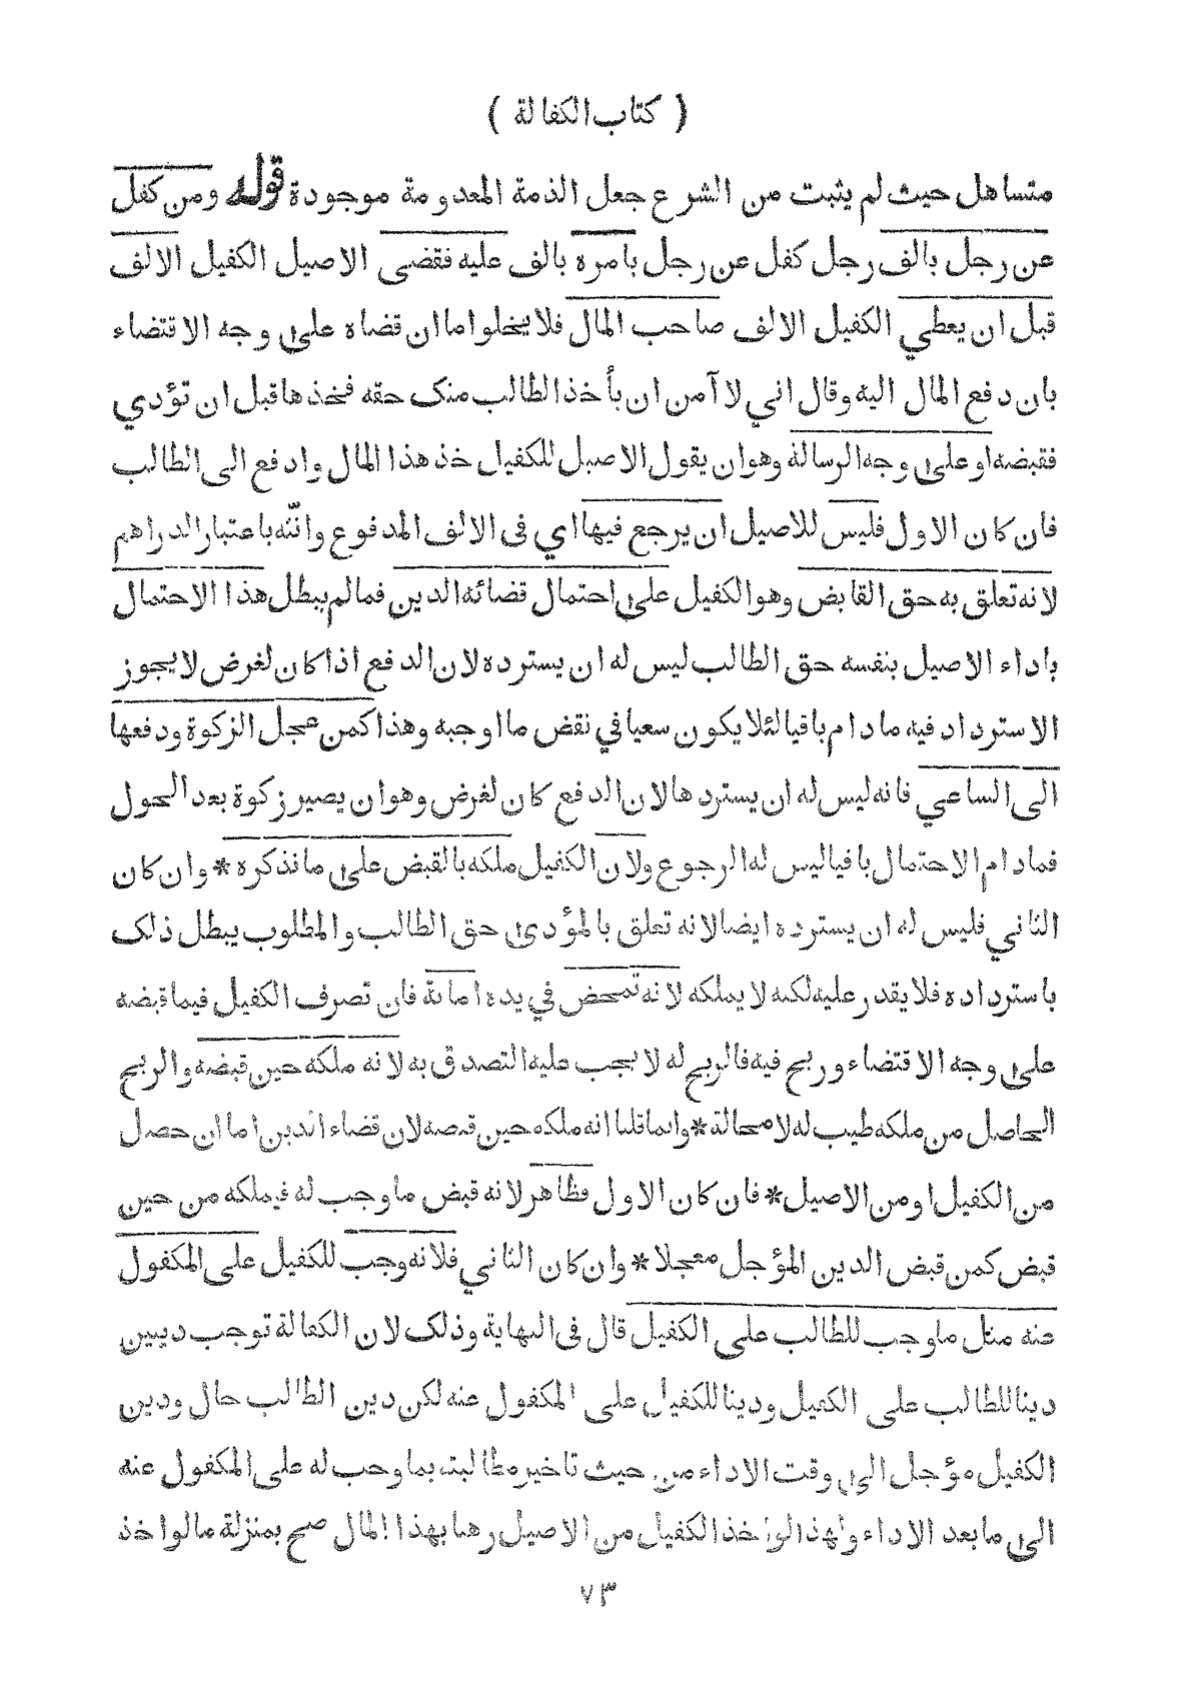 ( كتاب الكفالة )
متساهل حيث لم يثبت من الشرع جعل الذمة المعدومة موجودة قوله ومن كفل
عن رجل بالف رجل كفل عن رجل بامره بالف عليه فقضى الاصيل الكفيل الالف
قبل ان يعطي الكفيل الالف صاحب المال فلا يخلوا ما ان قضاه على وجه الاقتضاء
بان دفع المال اليه وقال اني لا آمن ان يأخذ الطالب منك حقه فخذها قبل ان تؤدي
فقبضه او على وجه الرسالة وهو ان يقول الاصيل للكفيل خذ هذا المال وادفع الى الطالب
فان كان الاول فليس للاصيل ان يرجع فيها اي فى الالف المدفوع وانثه باعتبار الدراهم
لانه تعلق به حق القابض وهو الكفيل على احتمال قضائه الدين فما لم يبطل هذا الاحتمال
باداء الاصيل بنفسه حق الطالب ليس له ان يسترده لان الدفع اذا كان لغرض لا يجوز
الاسترداد فيه ما دام باقيا لئلا يكون سعيا في نقض ما اوجبه وهذا كمن عجل الزكوة ودفعها
الى الساعي فانه ليس له ان يستردها لان الدفع كان لغرض وهو ان يصير زكوة بعد الحول
فمادام الاحتمال باقيا ليس له الرجوع ولان الكفيل ملكه بالقبض على ما نذكره * وان كان
الثاني فليس له ان يسترده ايضا لانه تعلق بالمؤدى حق الطالب والمطلوب يبطل ذلك
باسترداده فلا يقدر عليه لكنه لا يملكه لانه تمحض في يده امانة فان تصرف الكفيل فيما قبضه
على وجه الاقتضاء وربح فيه فالربح له لا يجب عليه التصدق به لانه ملكه حين قبضه والربح
الحاصل من ملكه طيب له لا محالة * وانما قلنا انه ملكه حين قبضه لان قضاء الدين اما ان حصل
من الكفيل او من الاصيل * فان كان الاول فظاهر لانه قبض ما وجب له فيملكه من حين
قبض كمن قبض الدين المؤجل معجلا * وان كان الثاني فلانه وجب للكفيل على المكفول
عنه مثل ما وجب للطالب على الكفيل قال فى النهاية وذلك لان الكفالة توجب دينين
دينا للطالب على الكفيل ودينا للكفيل على المكفول عنه لكن دين الطالب حال ودين
الكفيل مؤجل الى وقت الاداء من حيث تاخير مطالبته بما وجب له على المكفول عنه
الى ما بعد الاداء ولهذا لو اخذ الكفيل من الاصيل رهنا بهذا المال صح بمنزلة ما لو اخذ
٧٣